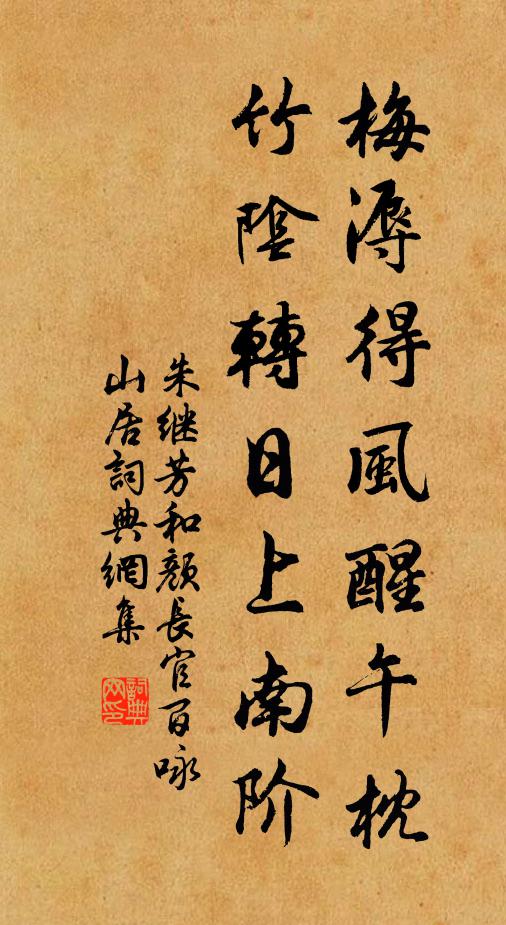 梅溽得風醒午枕
竹陰轉日上南阶
朱继芳和顏長官百咏
山居詞典網集
詞典
网印